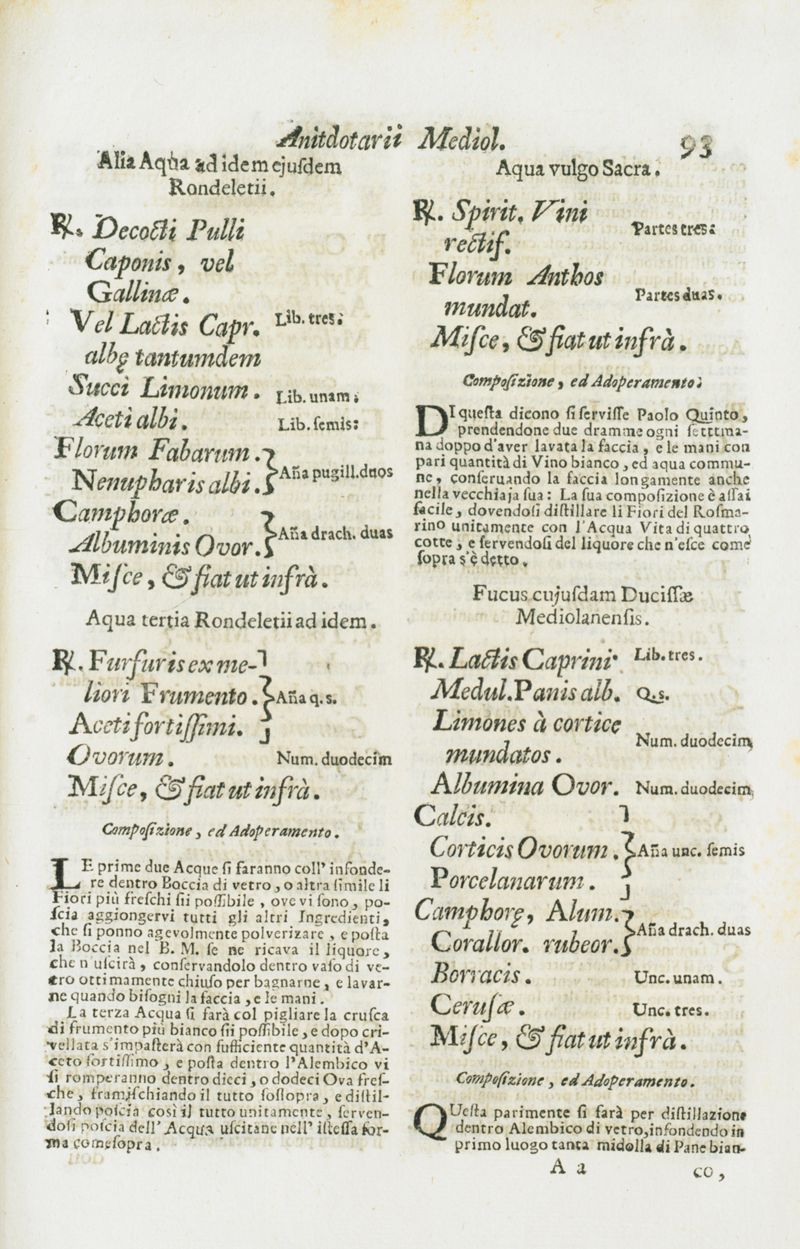 Anitdotarii Mediol. 93
Alia Aqua ad idem ejuſdem
Rondeletii.
℞. Decocti Pulli
Caponis, vel
Gallinæ.
Vel Lactis Capr. Lib. tres.
albę tantumdem
Succi Limonum. Lib. unam;
Aceti albi. Lib. ſemis:
Florum Fabarum.
Nenupharis albi. Aña pugill. duos
Camphoræ.
Albuminis Ovor. Aña drach. duas
Miſce, & fiat ut infrà.
Aqua tertia Rondeletii ad idem.
℞. Furfuris ex me-
liori Frumento. Aña q. s.
Aceti fortiſſimi.
Ovorum. Num. duodecim
Miſce, & fiat ut infrà.
Compoſizione, ed Adoperamento.
LE prime due Acque ſi faranno coll' infonde-
re dentro Boccia di vetro, o altra ſimile li
Fiori più freſchi ſii poſſibile, ove vi ſono, po-
ſcia aggiongervi tutti gli altri Ingredienti,
che ſi ponno agevolmente polverizare, e poſta
la Boccia nel B. M. ſe ne ricava il liquore,
che n'uſcirà, conſervandolo dentro vaſo di ve-
tro ottimamente chiuſo per bagnarne, e lavar-
ne quando biſogni la faccia, e le mani.
La terza Acqua ſi farà col pigliare la cruſca
di frumento più bianco ſii poſſibile, e dopo cri-
vellata s'impaſterà con ſufficiente quantità d'A-
ceto fortiſſimo, e poſta dentro l'Alembico vi
ſi romperanno dentro dieci, o dodeci Ova freſ-
che, framiſchiando il tutto ſoſſopra, e diſtil-
lando poſcia così il tutto unitamente, ſerven-
doſi poſcia dell' Acqua uſcitane nell' iſteſſa for-
ma come ſopra.
Aqua vulgo Sacra.
℞. Spirit. Vini
rectif. Partes tres:
Florum Anthos
mundat. Partes duas.
Miſce, & fiat ut infrà.
Compoſizione, ed Adoperamento.
DI queſta dicono ſi ſerviſſe Paolo Quinto,
prendendone due dramme ogni ſetttma-
na doppo d'aver lavata la faccia, e le mani con
pari quantità di Vino bianco, ed aqua commu-
ne, conſeruando la faccia longamente anche
nella vecchiaja ſua: La ſua compoſizione è aſſai
facile, dovendoſi diſtillare li Fiori del Roſma-
rino unitamente con l'Acqua Vita di quattro
cotte, e ſervendoſi del liquore che n'eſce come
ſopra s'è detto.
Fucus cujuſdam Duciſſæ
Mediolanenſis.
℞. Lactis Caprini Lib. tres.
Medul. Panis alb. Q. s.
Limones à cortice
mundatos. Num. duodecim
Albumina Ovor. Num. duodecim
Calcis.
Corticis Ovorum. Aña unc. ſemis
Porcelanarum.
Camphorę, Alum.
Corallor. rubeor. Aña drach. duas
Borracis. Unc. unam.
Ceruſæ. Unc. tres.
Miſce, & fiat ut infrà.
Compoſizione, ed Adoperamento.
QUeſta parimente ſi farà per diſtillazione
dentro Alembico di vetro, infondendo in
primo luogo tanta midolla di Pane bian-
A a co,